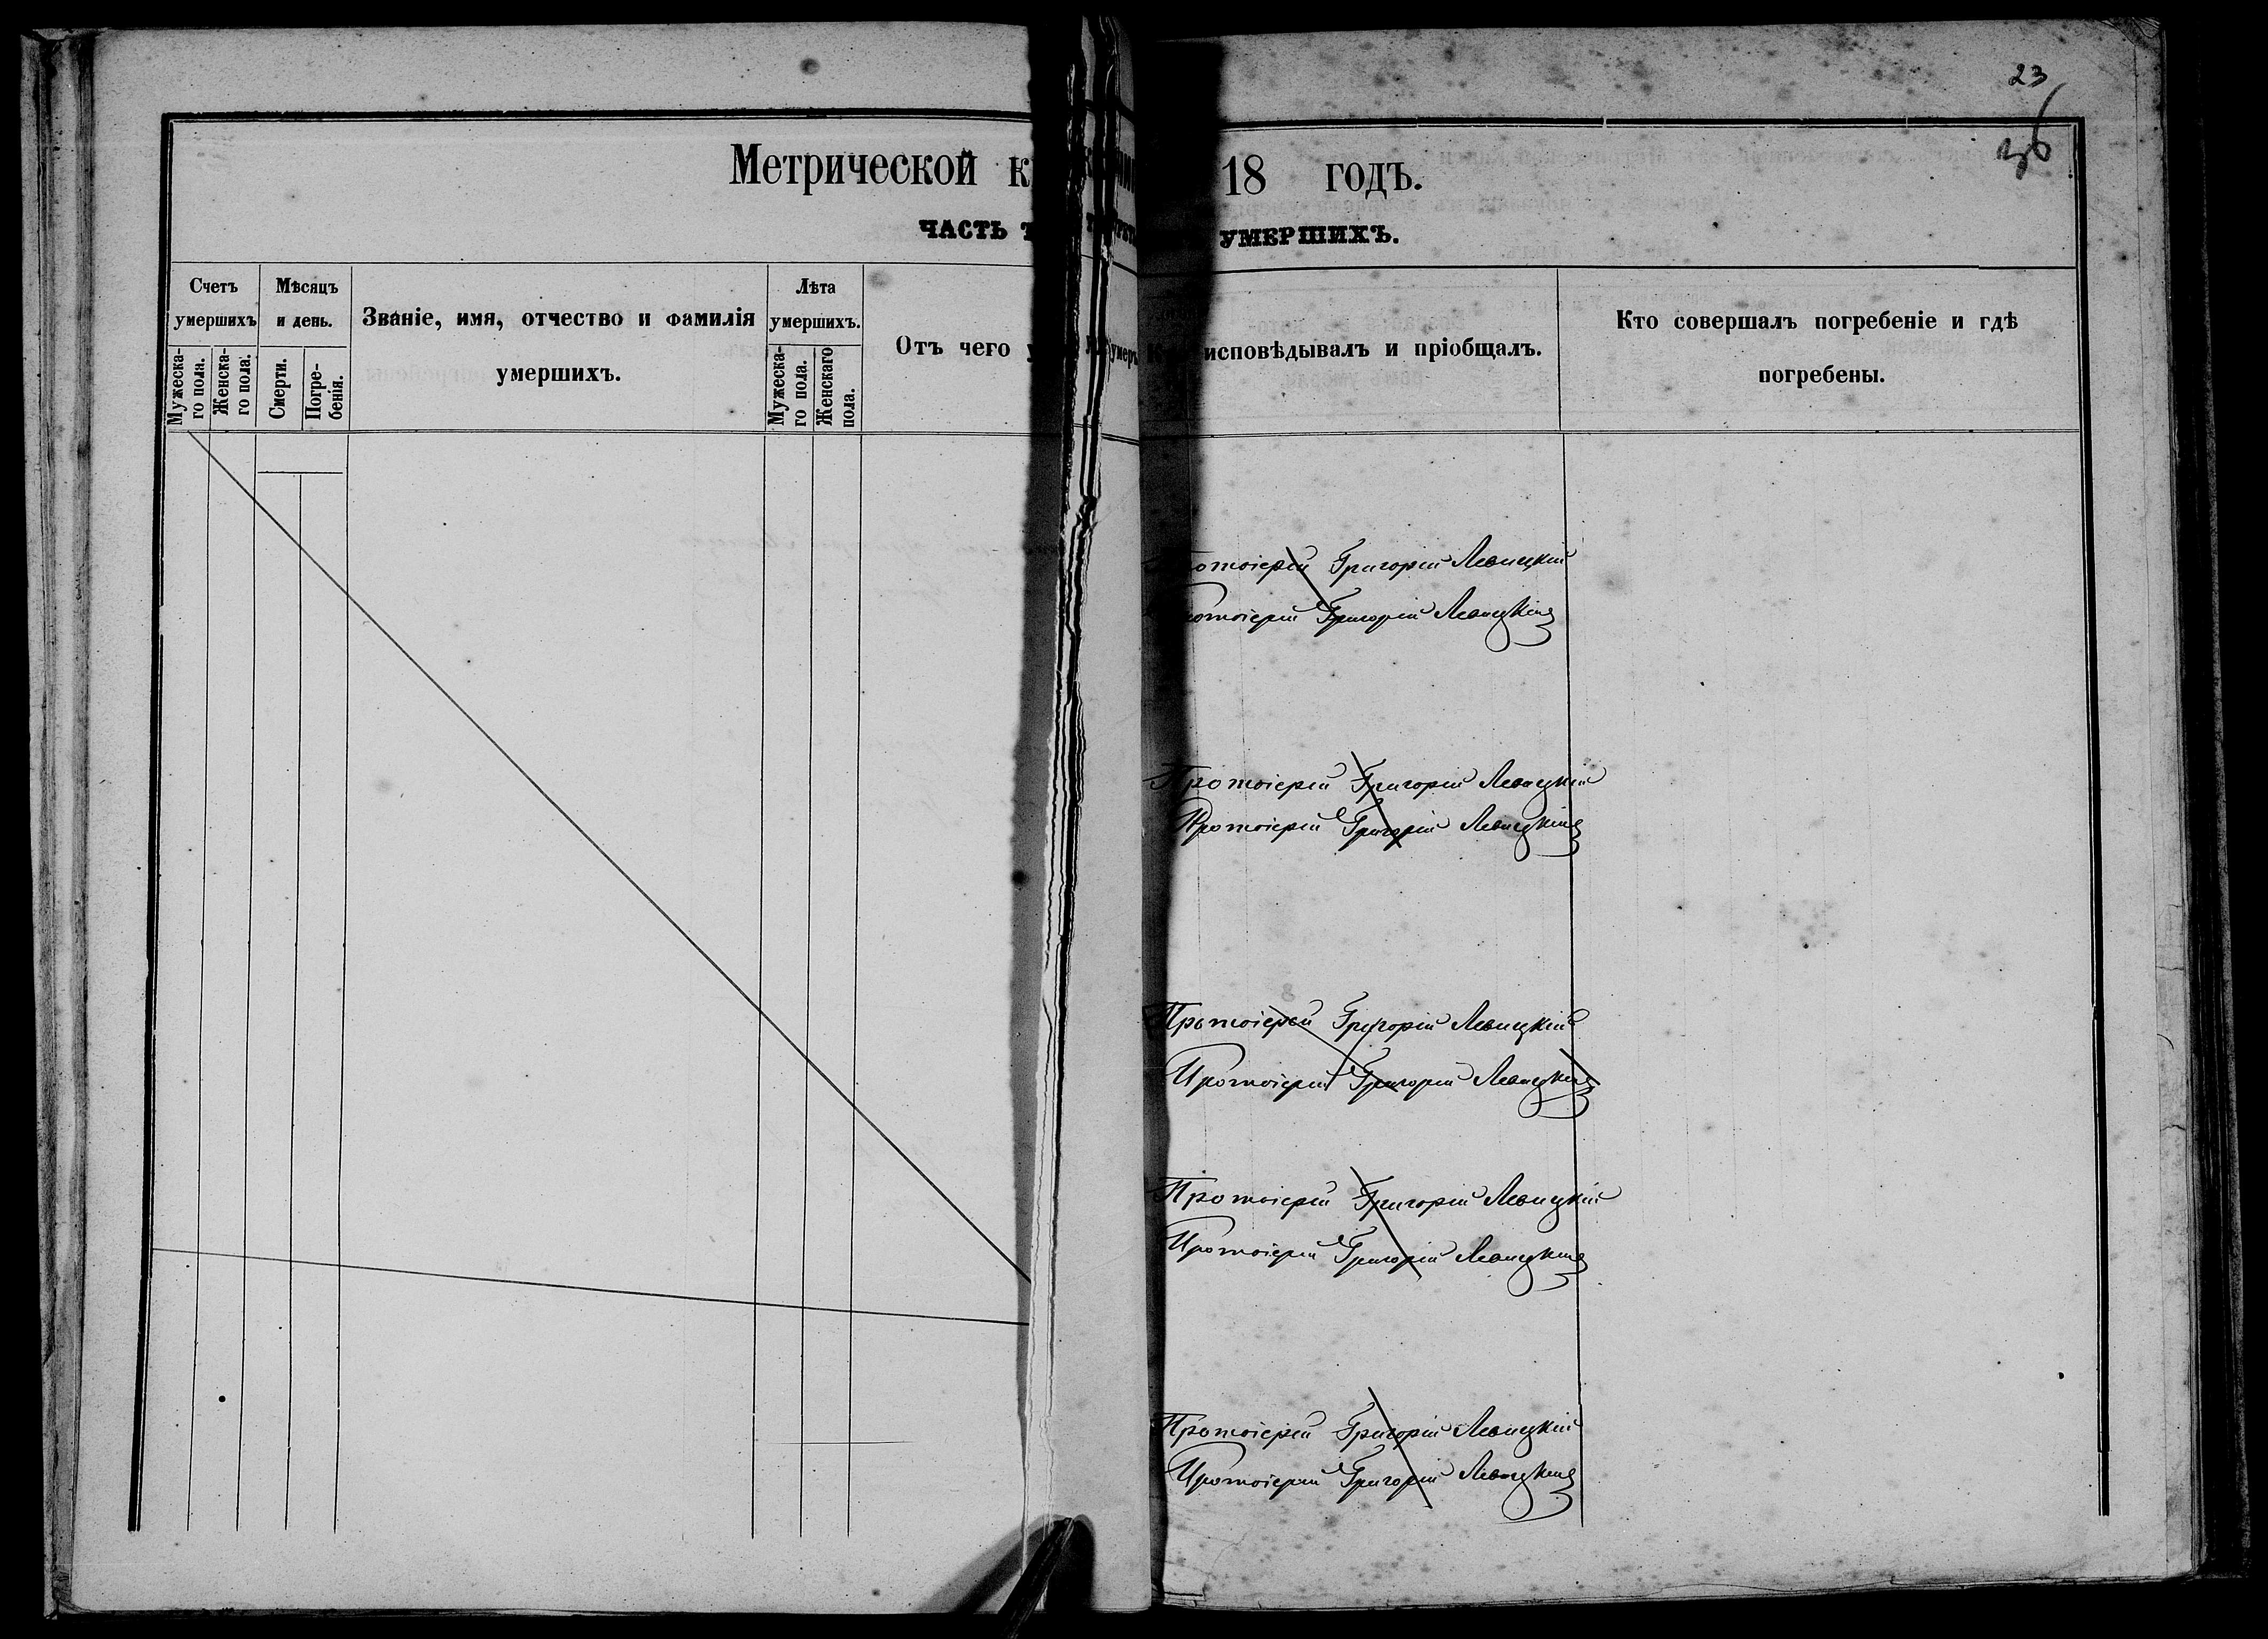 23
36
Метрической к 18 годъ.
часть т умершихъ.
Счетъ умершихъ
Мужеска-го пола.
Женска-го пола.
Мѣсяцъ и день.
Смерти.
Погре-бенія.
Званіе, имя, отчество и фамилія
умершихъ.
Лѣта умершихъ.
Мужеска-го пола.
Женскаго пола.
Отъ чего у
исповѣдывалъ и пріобщалъ.
Кто совершалъ погребеніе и гдѣ
погребены.
отоіерей Григорій Левицкій
ротоіерей Григорій Левицкій
Протоіерей Григорій Левицкій
Протоіерей Григорій Левицкій
Протоіерей Григорій Левицкій
Протоіерей Григорій Левицкій
Протоіерей Григорій Левицкій
Протоіерей Григорій Левицкій
Протоіерей Григорій Левицкій
Протоіерей Григорій Левицкій